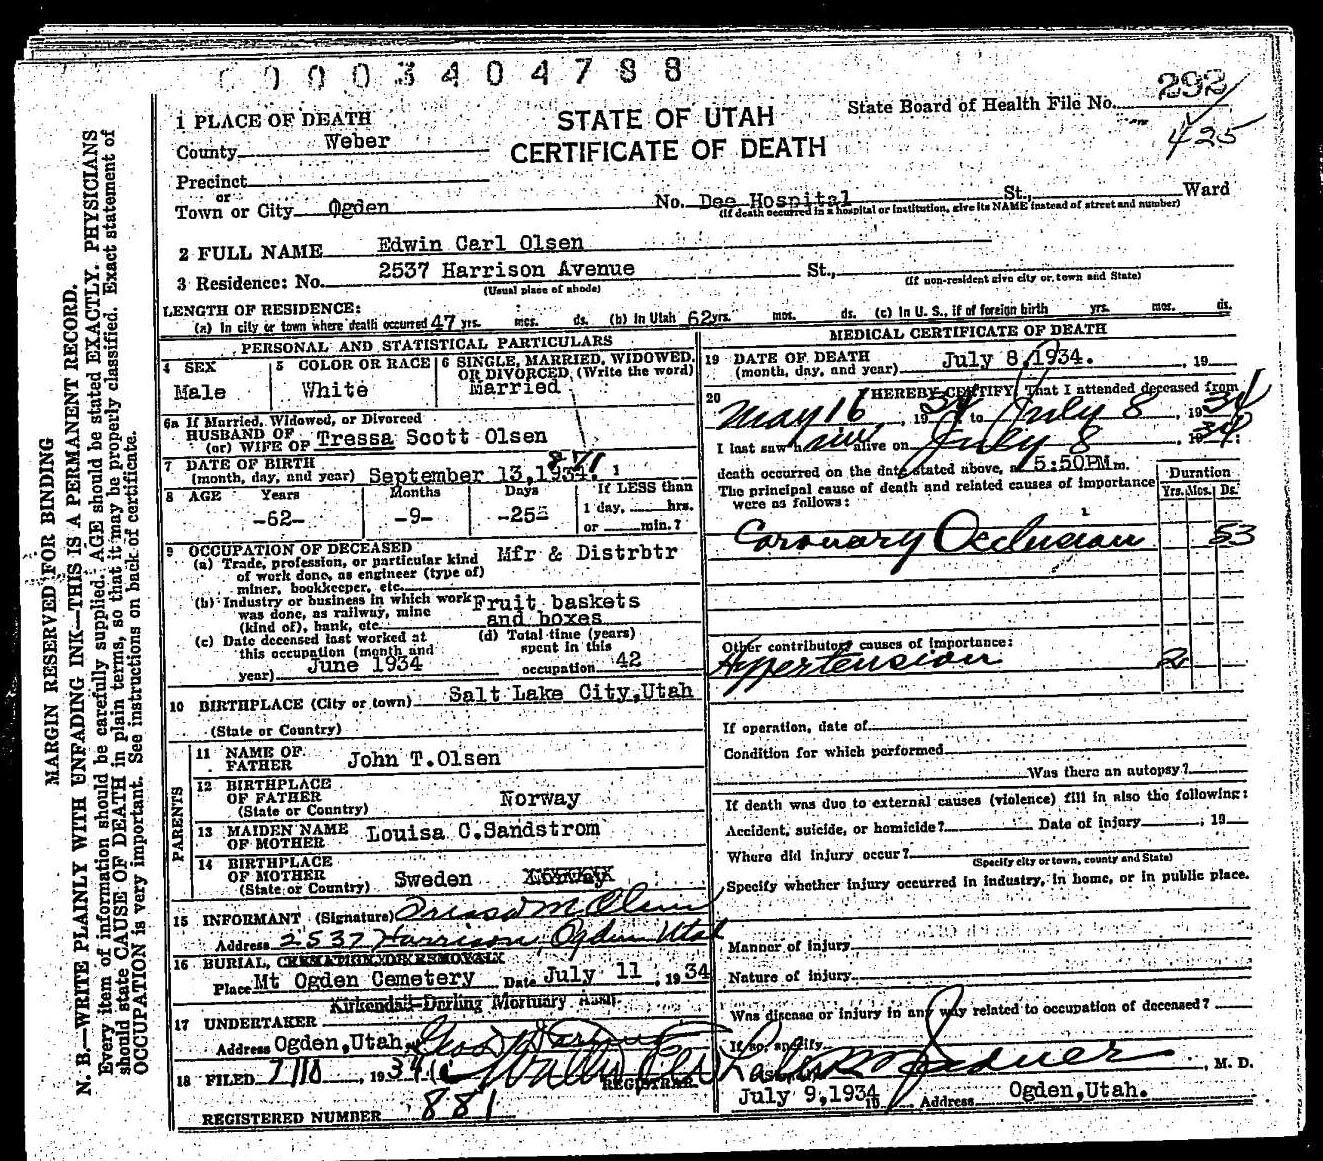 0003404788
STATE OF UTAH
CERTIFICATE OF DEATH
State Board of Health File No. 292
425
1 PLACE OF DEATH
County Weber
Precinct
or
Town or City Ogden No. Dee Hospital St., Ward
(If death occurred in a hospital or institution, give its NAME instead of street and number)
2 FULL NAME Edwin Carl Olsen
3 Residence: No. 2537 Harrison Avenue St.,
(Usual place of abode) (If non-resident give city or town and State)
LENGTH OF RESIDENCE:
(a) In city or town where death occurred 47 yrs. mos. ds. (b) In Utah 62 yrs. mos. ds. (c) In U. S., if of foreign birth yrs. mos. ds.
PERSONAL AND STATISTICAL PARTICULARS
4 SEX
Male
5 COLOR OR RACE
White
6 SINGLE, MARRIED, WIDOWED,
OR DIVORCED, (Write the word)
Married
6a If Married, Widowed, or Divorced
HUSBAND OF
(or) WIFE OF Tressa Scott Olsen
7 DATE OF BIRTH
(month, day, and year) September 13, 1934. 871
8 AGE Years Months Days If LESS than
-62- -9- -25- 1 day, hrs.
or min.?
9 OCCUPATION OF DECEASED
(a) Trade, profession, or particular kind
of work done, as engineer (type of)
miner, bookkeeper, etc. Mfr & Distrbtr
(b) Industry or business in which work
was done, as railway, mine
(kind of), bank, etc. Fruit baskets
and boxes
(c) Date deceased last worked at
this occupation (month and
year) June 1934
(d) Total time (years)
spent in this
occupation 42
10 BIRTHPLACE (City or town) Salt Lake City, Utah
(State or Country)
PARENTS
11 NAME OF
FATHER John T. Olsen
12 BIRTHPLACE
OF FATHER
(State or Country) Norway
13 MAIDEN NAME
OF MOTHER Louisa C. Sandstrom
14 BIRTHPLACE
OF MOTHER
(State or Country) Sweden
15 INFORMANT (Signature) Tressa M. Olsen
Address 2537 Harrison Ogden Utah
16 BURIAL, CREMATION OR REMOVAL
Place Mt Ogden Cemetery Date July 11, 1934
Kirkendall-Darling Mortuary
17 UNDERTAKER
Address Ogden, Utah,
18 FILED 7/10, 1934
REGISTRAR
REGISTERED NUMBER 881
MEDICAL CERTIFICATE OF DEATH
19 DATE OF DEATH
(month, day, and year) July 8, 1934. , 19
20 I HEREBY CERTIFY, That I attended deceased from
May 16, 1934 to July 8, 1934
I last saw him alive on July 8, 1934;
death occurred on the date stated above, at 5:50PM m.
The principal cause of death and related causes of importance
were as follows:
Duration
Yrs. Mos. Ds.
Coronary Occlusion 53
Other contributory causes of importance:
Hypertension 2
If operation, date of
Condition for which performed
Was there an autopsy?
If death was due to external causes (violence) fill in also the following:
Accident, suicide, or homicide? Date of injury ; 19
Where did injury occur?
(Specify city or town, county and State)
Specify whether injury occurred in industry, in home, or in public place.
Manner of injury
Nature of injury
Was disease or injury in any way related to occupation of deceased?
If so, specify
, M. D.
July 9, 1934 19 Address Ogden, Utah.
MARGIN RESERVED FOR BINDING
N. B.—WRITE PLAINLY WITH UNFADING INK—THIS IS A PERMANENT RECORD.
Every item of information should be carefully supplied. AGE should be stated EXACTLY. PHYSICIANS
should state CAUSE OF DEATH in plain terms, so that it may be properly classified. Exact statement of
OCCUPATION is very important. See instructions on back of certificate.